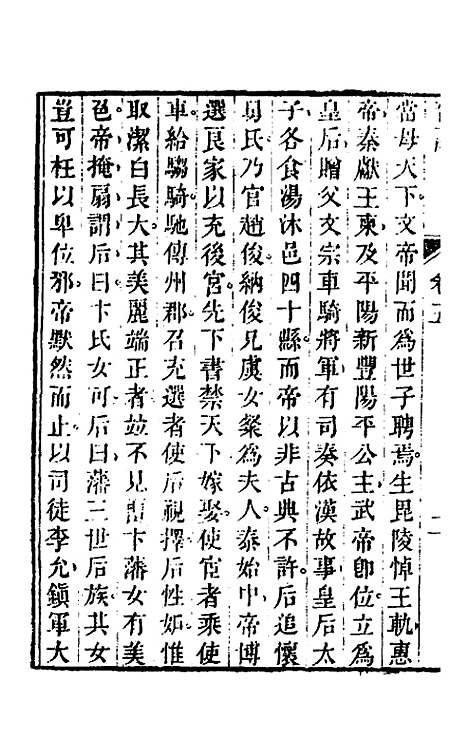 當母天下文帝聞而爲世子聘焉生毘陵悼王軌惠
帝秦獻王柬及平陽新豐陽平公主武帝卽位立爲
皇后贈父文宗車騎將軍有司奏依漢故事皇后太
子各食湯沐邑四十縣而帝以非古典不許后追懷
舅氏乃官趙俊納俊兄虞女粲爲夫人泰始中帝博
選良家以充後宮先下書禁天下嫁娶使宦者乘使
車給騶騎馳傳州郡召充選者使后視擇后性妬惟
取潔白長大其美麗端正者竝不見畱卞藩女有美
色帝掩扇謂后曰卞氏女可后曰藩三世后族其女
豈可枉以卑位邪帝默然而止以司徒李允鎭軍大
卷五